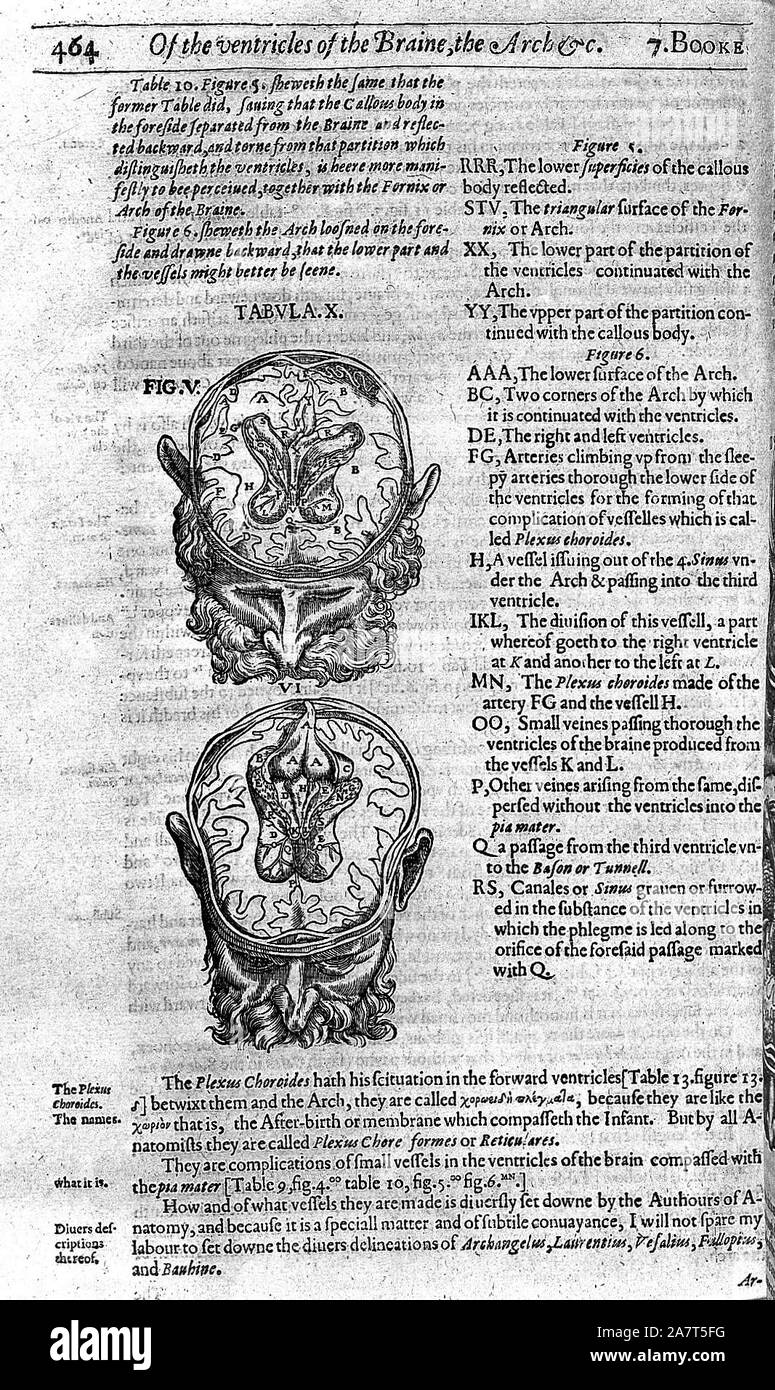 464 Of the ventricles of the Braine, the Arch &c. 7. BOOKE
Table 10. Figure 5. ſheweth the ſame that the
former Table did, ſauing that the Callous body in
the foreſide ſeparated from the Braine and reflec-
ted backward, and torne from that partition which
diſtinguiſheth the ventricles, is heere more mani-
feſtly to bee perceiued, together with the Fornix or
Arch of the Braine.
Figure 6. ſheweth the Arch looſned on the fore-
ſide and drawne backward, that the lower part and
the veſſels might better be ſeene.
TABVLA. X.
FIG. V.
VI
Figure 5.
RRR, The lower ſuperficies of the callous
body reflected.
STV, The triangular ſurface of the For-
nix or Arch.
XX, The lower part of the partition of
the ventricles continuated with the
Arch.
YY, The vpper part of the partition con-
tinued with the callous body.
Figure 6.
AAA, The lower ſurface of the Arch.
BC, Two corners of the Arch by which
it is continuated with the ventricles.
DE, The right and left ventricles.
FG, Arteries climbing vp from the ſlee-
py arteries thorough the lower ſide of
the ventricles for the forming of that
complication of veſſelles which is cal-
led Plexus choroides.
H, A veſſel iſſuing out of the 4. Sinus vn-
der the Arch & paſſing into the third
ventricle.
IKL, The diuiſion of this veſſell, a part
whereof goeth to the right ventricle
at K and another to the left at L.
MN, The Plexus choroides made of the
artery FG and the veſſell H.
OO, Small veines paſſing thorough the
ventricles of the braine produced from
the veſſels K and L.
P, Other veines ariſing from the ſame, diſ-
perſed without the ventricles into the
pia mater.
Q a paſſage from the third ventricle vn-
to the Baſon or Tunnell.
RS, Canales or Sinus grauen or furrow-
ed in the ſubſtance of the ventricles in
which the phlegme is led along to the
orifice of the foreſaid paſſage marked
with Q.
The Plexus
Choroides.
The names.
The Plexus Choroides hath his ſcituation in the forward ventricles [Table 13. figure 13.
] betwixt them and the Arch, they are called becauſe they are like the
χωρίον that is, the After-birth or membrane which compaſſeth the Infant. But by all A-
natomiſts they are called Plexus Chore formes or Reticulares.
What it is.
They are complications of ſmall veſſels in the ventricles of the brain compaſſed with
the pia mater [Table 9, fig. 4. oo table 10, fig. 5. oo fig. 6. MN.]
Diuers deſ-
criptions
thereof.
How and of what veſſels they are made is diuerſly ſet downe by the Authours of A-
natomy, and becauſe it is a ſpeciall matter and of ſubtile conuayance, I will not ſpare my
labour to ſet downe the diuers delineations of Archangelus, Laurentius, Veſalius, Fallopius,
and Bauhine.
Ar-
alamy
Image ID: 2A7T5FG
www.alamy.com